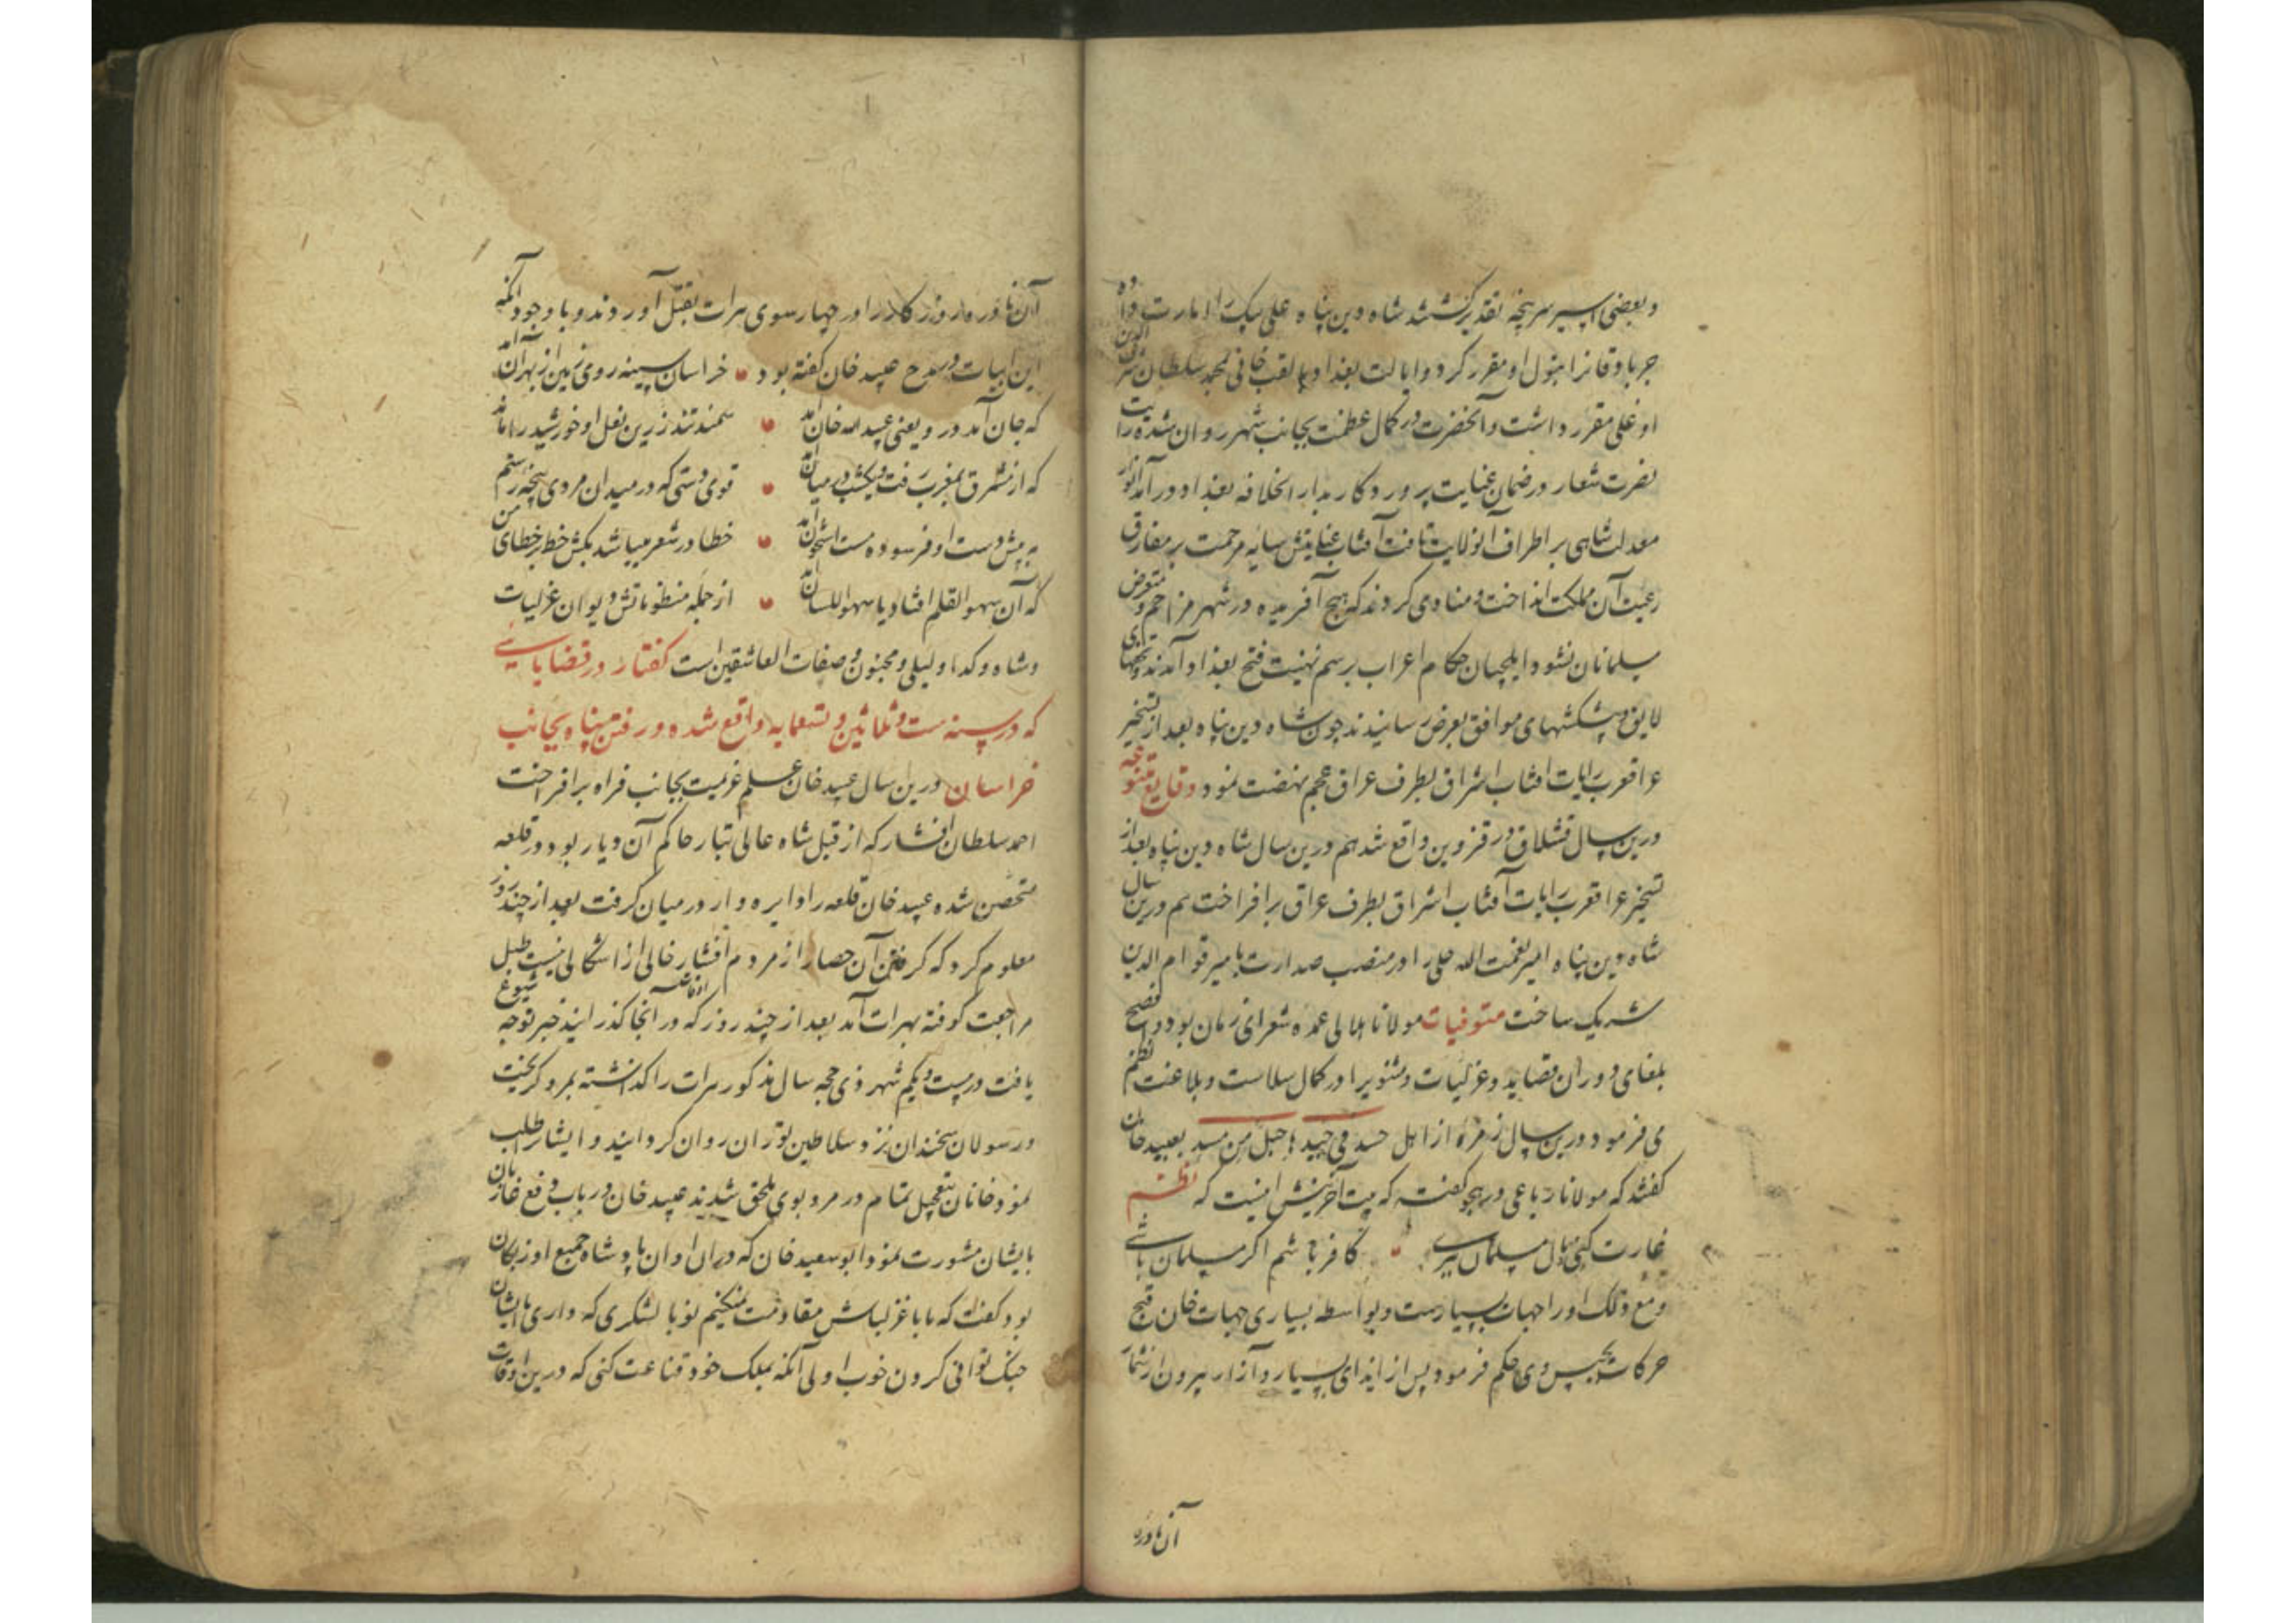 و بعضی اسیر سرپنجه تقدیر گشتند شاه دین پناه علی بیک را امارت داده
جرباوقانرا بتیول او مقرر کرد و ایالت بغداد با لقب خانی بمحمد سلطان شرف الدین
اوغلی مقرر داشت و آنحضرت در کمال عظمت بجانب شهر روان شده رایت
نصرت شعار در ضمان عنایت پروردکار بدار الخلافه بغداد در آمد انوار
معدلت شاهی بر اطراف انولایت تافت آفتاب عنایتش سایه مرحمت بر مفارق
رعیت آن مملکت انداخت و منادی کردند که هیچ آفریده در شهر مزاحم و متعرض
مسلمانان نشود و ایلچیان حکام اعراب برسم تهنیت فتح بغداد آمدند و تحفهای
لایق و پیشکشهای موافق بعرض رسانیدند چون شاه دین پناه بعد از تسخیر
عراقعرب رایات افتاب اشراق بطرف عراق عجم نهضت نمود وقایع متنوعه
درین سال قشلاق در قزوین واقع شد هم درین سال شاه دین پناه بعد از
تسخیر عراقعرب رایات آفتاب اشراق بطرف عراق برافراخت هم درین سال
شاه دین پناه امیر نعمت الله حلی را در منصب صدارت با میر قوام الدین
شریک ساخت متوفیات مولانا هلالی عمده شعرای زمان بود و افصح
بلغای دوران قصاید و غزلیات و مثنویرا در کمال سلاست و بلاغت نظم
می فرمود درین سال زمره از اهل حسد فی جیدها حبل من مسد بعبید خان
کفتند که مولانا رباعی در هجو کفته که بیت آخرینش اینست که نظم
غارت کنی و مال مسلمان ببری کافر باشم اکر مسلمان باشی
و مع ذلک او را جهات بسیارست و بواسطه بسیاری جهات خان قبیح
حرکات بحبس وی حکم فرمود پس از ایذای بسیار و آزار بیرون از شمار
آن نادره
آن نادره روزکار را در چهار سوی هرات بقتل آوردند و با وجود آنکه
این ابیات در مدح عبید خان کفته بود خراسان سینه روی زمین از بهر آن آمد
که جان آمد درو یعنی عبید الله خان آمد سمند تند زرین نعل او خورشید را ماند
که از مشرق بمغرب رفت و یکشب در میان آمد قوی دستی که در میدان مردی پنجه رستم
به پیش دست او فرسوده مشت استخوان آمد خطا در شعر میباشد بکش خط بر خطای من
که آن سهو القلم افتاد یا سهو اللسان آمد از جمله منظوماتش دیوان غزلیات
و شاه و کدا و لیلی و مجنون و صفات العاشقین است کفتار در قضایایی
که در سنه ست و ثلاثین و تسعمایه واقع شده و رفتن بجانب
خراسان درین سال عبید خان علم عزیمت بجانب فراه برافراخت
احمد سلطان افشار که از قبل شاه عالی تبار حاکم آن دیار بود در قلعه
متحصن شده عبید خان قلعه را دایره وار در میان کرفت بعد از چند روز
معلوم کرد که کرفتن آن حصار از مردم افشار خالی از اشکالی نیست طبل
مراجعت کوفته بهرات آمد بعد از چند روز که در آنجا کذرانید خبر توجه شیوع
یافت در بیست و یکم شهر ذی حجه سال مذکور هرات را کذاشته بمرو کریخت
و رسولان سخندان نزد سلاطین توران روان کردانید و ایشانرا طلب
نمود خانان بتعجیل تمام در مرو بوی ملحق شدند عبید خان در باب دفع غازیان
بایشان مشورت نمود ابو سعید خان که در ان اوان پادشاه جمیع اوزبکان
بود کفت که ما با غزلباش مقاومت نمیکنیم تو با لشکری که داری با ایشان
جنک توانی کردن خوب و اولی آنکه بملک خود قناعت کنی که درین اوقات